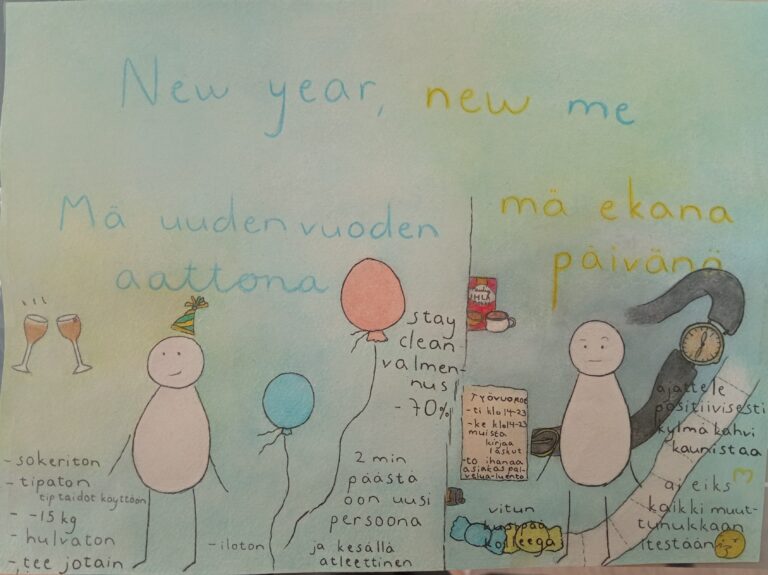 New year, new me
Mä uudenvuoden
aattona
mä ekana
päivänä
stay
clean
valmen-
nus
-70%
- sokeriton
- tipaton
tiptaidot käyttöön
- -15 kg
- hulvaton
- tee jotain
- iloton
2 min
päästä
oon uusi
persoona
ja kesällä
atleettinen
TYÖVUOROT
- ti klo 14-23
- ke klo 14-23
muista
kirjaa
laskut
- to ihanaa
asiakaspal-
velua-luento
vitun
kollega
ajattele
positiivisesti
kylmä kahvi
kaunistaa
ai eiks
kaikki muut-
tunukkaan
itestään